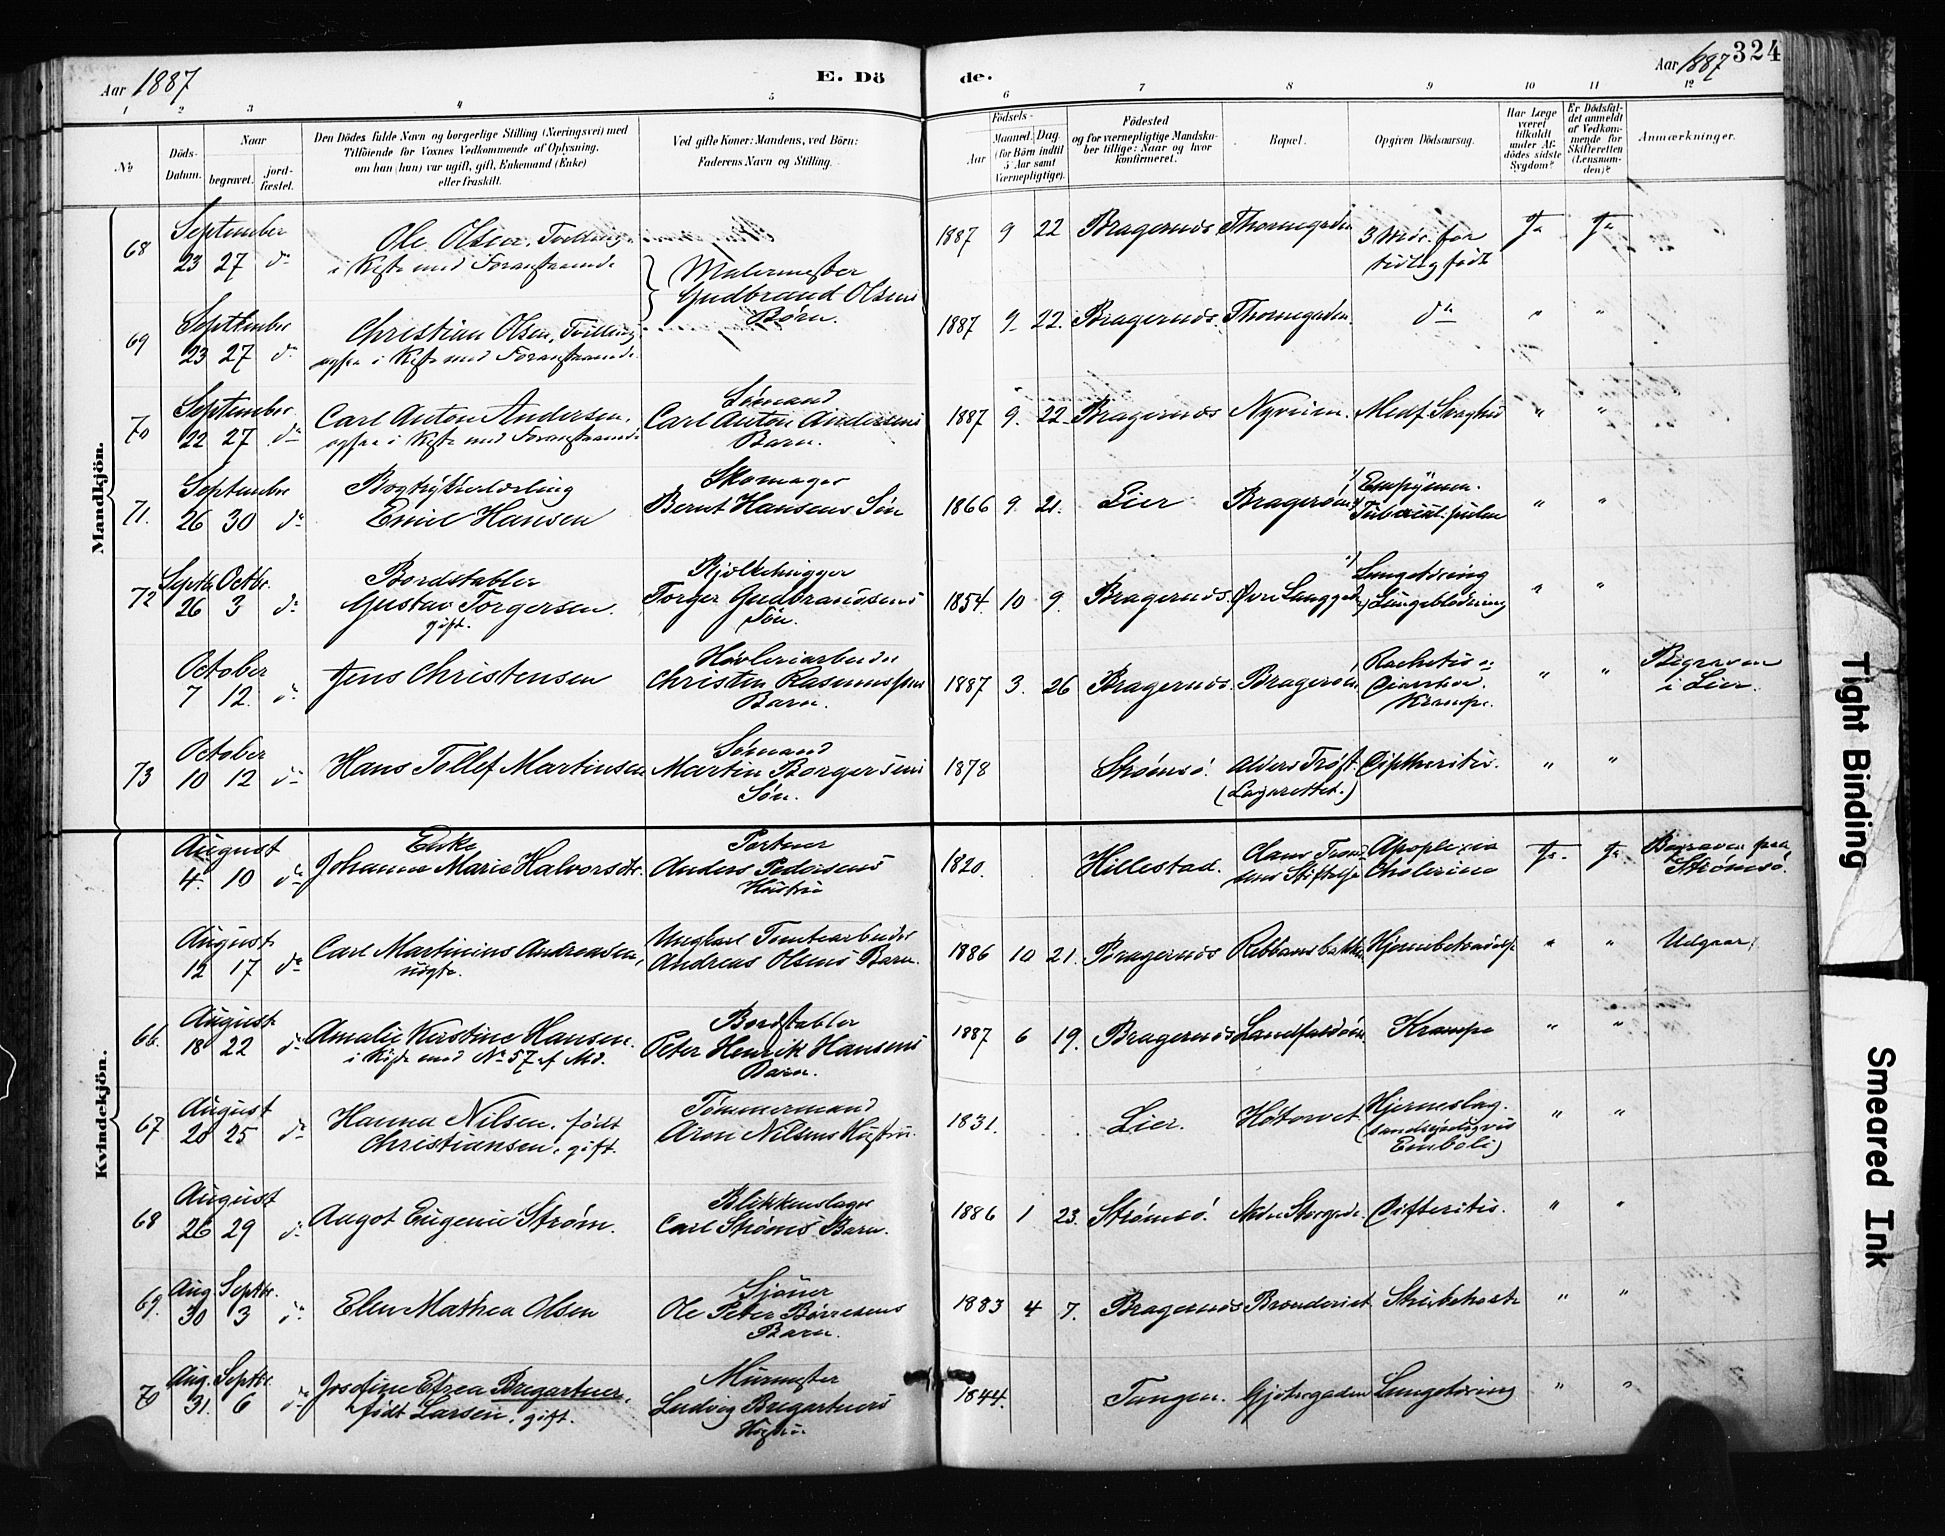 Aar 1887
E. Döde.
Aar 1887
324
1 2 3 4 5 6 7 8 9 10 11 12
No
Döds-Datum.
Naar
begravet.
jord-fæstet.
Den Dödes fulde Navn og borgerlige Stilling (Næringsvei) med
Tilföiende for Voxnes Vedkommende af Oplysning,
om han (hun) var ugift, gift, Enkemand (Enke)
eller fraskilt.
Ved gifte Koner: Mandens, ved Börn:
Faderens Navn og Stilling.
Födsels-
Aar
Maaned. Dag.
(for Börn indtil
5 Aar samt
Værnepligtige).
Födested
og for værnepligtige Mandskaber tillige: Naar og hvor
konfirmeret.
Bopæl.
Opgiven Dödsaarsag.
Har Læge
været
tilkaldt
under Afdödes sidste
Sygdom?
Er Dödsfaldet anmeldt
af Vedkommende for
Skifteretten
(Lensmanden)?
Anmærkninger.
Mandkjön.
68 September 23 27 do Ole Olsen, Tvilling i Kiste med Foranstaaende
Malermester Gudbrand Olsens Børn.
1887 9 22 Bragernæs Thornegaden 3 Mdr. for tidlig født Ja Ja
69 September 23 27 do Christian Olsen, Tvilling ogsaa i Kiste med Foranstaaende
1887 9 22. Bragernæs. Thornegaden. do " "
70 September 22 27 do Carl Anton Andersen, ogsaa i Kiste med Foranstaaende
Sømand Carl Anton Andersens Barn.
1887 9. 22 Bragernæs Nyveien. Medf Svaghed " "
71. September 26 30 do Bogtrykkerlærling Emil Hansen
Skomager Bernt Hansens Søn
1866 9. 21. Lier Bragerøen 1) Empyem. " "
72 Septbr. 26 Octbr. 3 do Bordstabler Gustav Torgersen. gift.
Bjelkehugger Torger Gudbrandsens Søn.
1854. 10 9. Bragernæs. Øvre Langgade 1) Lungetæring 2) Lungeblødning " "
October 7 12. do Jens Christensen
Høvleriarbeider Christen Rasmussens Barn.
1887 3. 26 Bragernæs. Bragerøen Rachetis Diarrhoe. Krampe. " " Begraven i Lier.
73 October 10 12 do Hans Tollef Martinsen
Sømand Martin Borgersens Søn.
1878 Strømsö. (Lazarettet.) Diphtheritis. " "
Kvindekjön.
August 4. 10 do Enke Johanne Marie Halvorsdtr.
Anders Pedersens Hustru
1820. Hillestad. Apoplexia Cholerine Ja. Ja Begraven paa Strømsö.
August 12 17 do Carl Martinius Andreasen,
Ungkarl Tomtearbeider Andreas Olsens Barn.
1886 10 21. Bragernæs Hjernebetændelse " " Udgaar!
66. August 18 22 do Amalie Kirstine Hansen. i Kiste med No 57 af Md.
Bordstabler Peter Henrik Hansens Barn.
1887 6 19. Bragernæs Landfaldøen Krampe " "
67 August 20 25 do Hanna Nilsen, født Christiansen, gift.
Tømmermand Aron Nilsens Hustru.
1831. Lier. Høtorvet Hjerneslag. (sandsynligvis Emboli) " "
68 August 26 29 do Augot Eugenie Strøm.
Blikkenslager Carl Strøms Barn.
1886 1 23. Strømsö. Nedre Storgade. Difteritis. " "
69. Aug. 30 Septbr. 3 do Elen Mathea Olsen
Sjouer Ole Peter Børresens Barn.
1883 4 7. Bragernæs Brænderiet Strubehoste " "
70 Aug. 31. Septbr. 6 do Josefine Elsea Bregartner, født Larsen, gift.
Murmester Ludvig Bregartners Hustru
1844. Tangen. Gjetergaden Lungetæring " "
Tight Binding
Smeared Ink